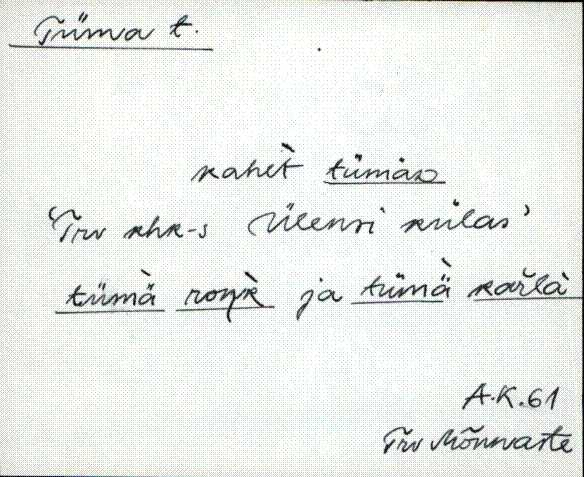 Tüma t.
kahèt tümäᴅ
'Trv khk-s Üleusi külas'
tümä̀ roŋk̀ ja tümä̀ kařlà
A.K.61
Trv Mõnnaste